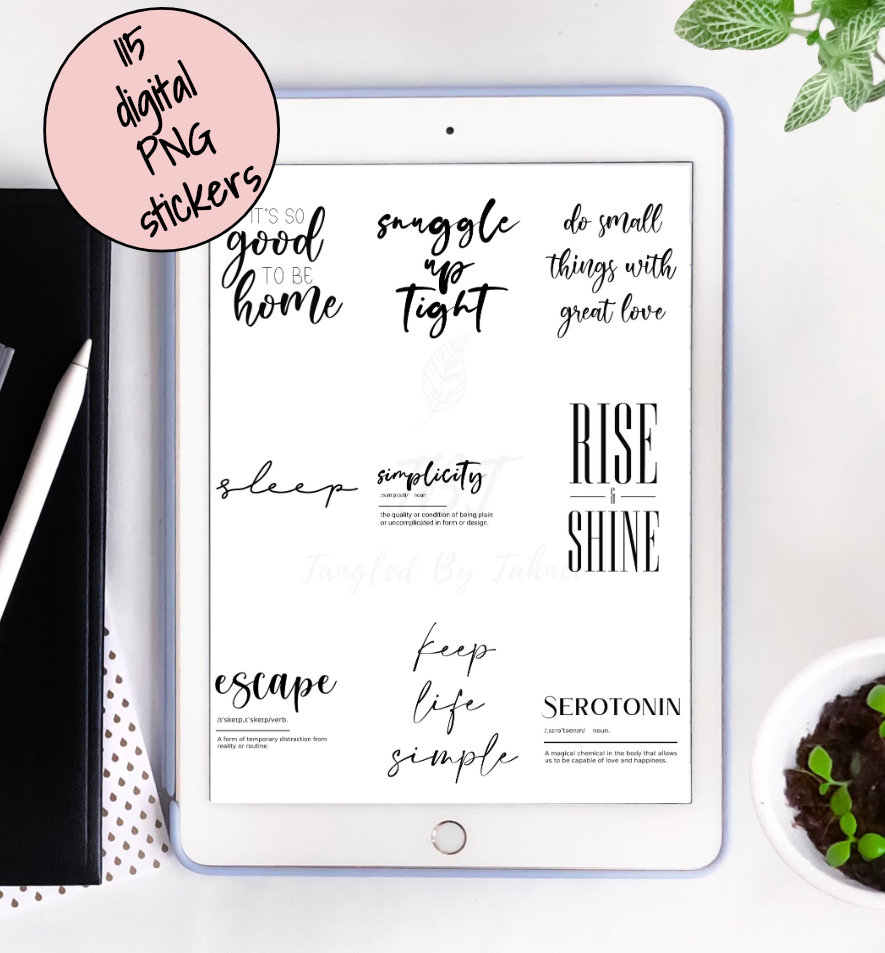 115
digital
PNG
stickers
IT'S SO
good
TO BE
home
snuggle
up
Tight
do small
things with
great love
sleep
simplicity
noun
the quality or condition of being plain
or uncomplicated in form or design.
RISE
&
SHINE
Tangled By Tahnee
escape
/ɪˈskeɪp,ɛˈskeɪp/verb.
A form of temporary distraction from
reality or routine.
keep
life
simple
SEROTONIN
noun.
A magical chemical in the body that allows
us to be capable of love and happiness.